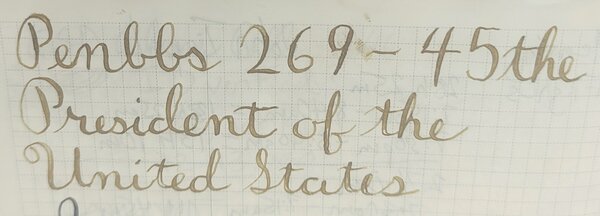 Penbbs 269 – 45the
President of the
United States